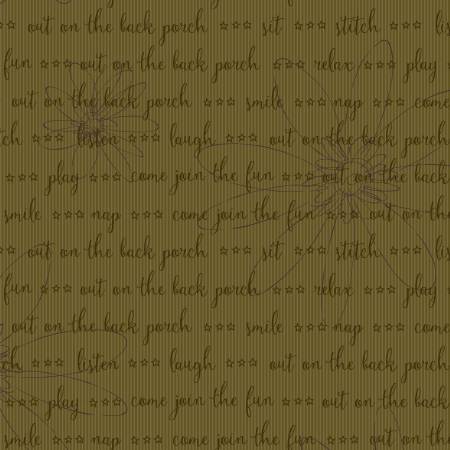 ☆ out on the back porch ☆☆☆ sit ☆☆☆ stitch ☆☆☆ lis
fun ☆☆☆ out on the back porch ☆☆☆ relax ☆☆☆ play
out on the back porch ☆☆☆ smile ☆☆☆ nap ☆☆☆ come
ch ☆☆☆ listen ☆☆☆ laugh ☆☆☆ out on the back porch
☆☆☆ play ☆☆☆ come join the fun ☆☆☆ out on the back
smile ☆☆☆ nap ☆☆☆ come join the fun ☆☆☆ out on the
☆☆ out on the back porch ☆☆☆ sit ☆☆☆ stitch ☆☆☆ lis
fun ☆☆☆ out on the back porch ☆☆☆ relax ☆☆☆ play
out on the back porch ☆☆☆ smile ☆☆☆ nap ☆☆☆ come
ch ☆☆☆ listen ☆☆☆ laugh ☆☆☆ out on the back porch
☆☆☆ play ☆☆☆ come join the fun ☆☆☆ out on the back
smile ☆☆☆ nap ☆☆☆ come join the fun ☆☆☆ out on the